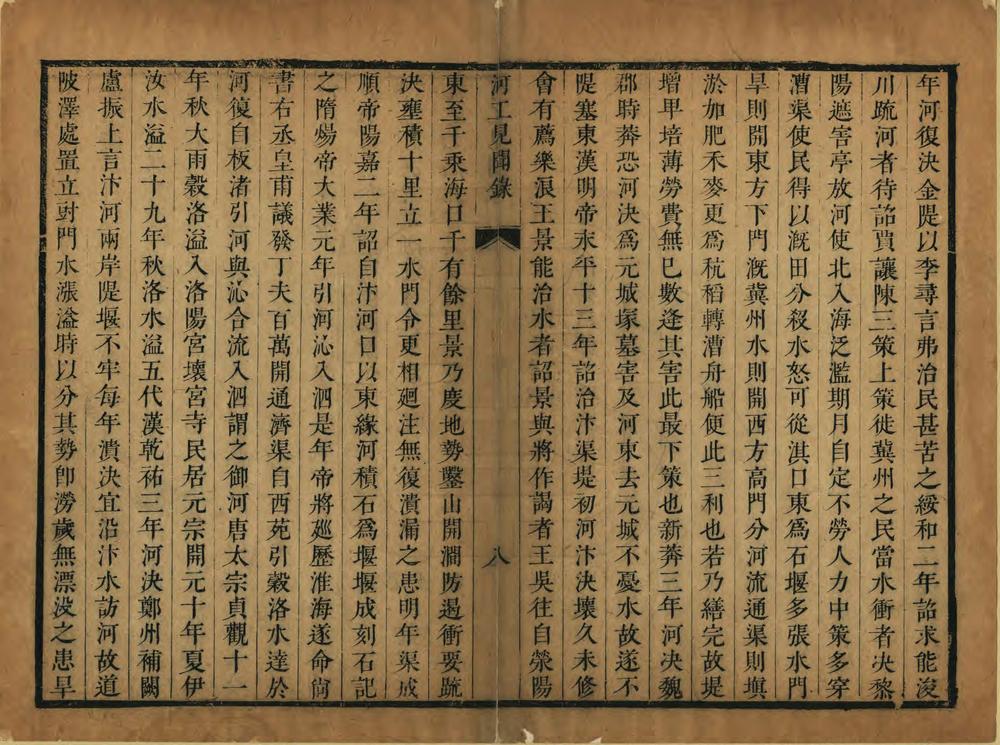 年河復決金隄以李尋言弗治民甚苦之綏和二年詔求能浚
川疏河者待詔賈讓陳三策上策徙冀州之民當水衝者決黎
陽遮害亭放河使北入海泛濫期月自定不勞人力中策多穿
漕渠使民得以溉田分殺水怒可從淇口東爲石堰多張水門
旱則開東方下門溉冀州水則開西方高門分河流通渠則塡
淤加肥禾麥更爲秔稻轉漕舟船便此三利也若乃繕完故堤
增卑培薄勞費無已數逢其害此最下策也新莽三年河決魏
郡時莽恐河決爲元城塚墓害及河東去元城不憂水故遂不
隄塞東漢明帝永平十三年詔治汴渠堤初河汴決壞久未修
會有薦樂浪王景能治水者詔景與將作謁者王吳往自滎陽
河工見聞錄
八
東至千乘海口千有餘里景乃度地勢鑿山開澗防遏衝要疏
決壅積十里立一水門令更相廻注無復潰漏之患明年渠成
順帝陽嘉二年詔自汴河口以東緣河積石爲堰堰成刻石記
之隋煬帝大業元年引河沁入泗是年帝將廵歷淮海遂命尙
書右丞皇甫議發丁夫百萬開通濟渠自西苑引穀洛水達於
河復自板渚引河與沁合流入泗謂之御河唐太宗貞觀十一
年秋大雨穀洛溢入洛陽宮壞宮寺民居元宗開元十年夏伊
汝水溢二十九年秋洛水溢五代漢乾祐三年河決鄭州補闕
盧振上言汴河兩岸隄堰不牢每年潰決宜沿汴水訪河故道
陂澤處置立斗門水漲溢時以分其勢卽澇歲無漂沒之患旱